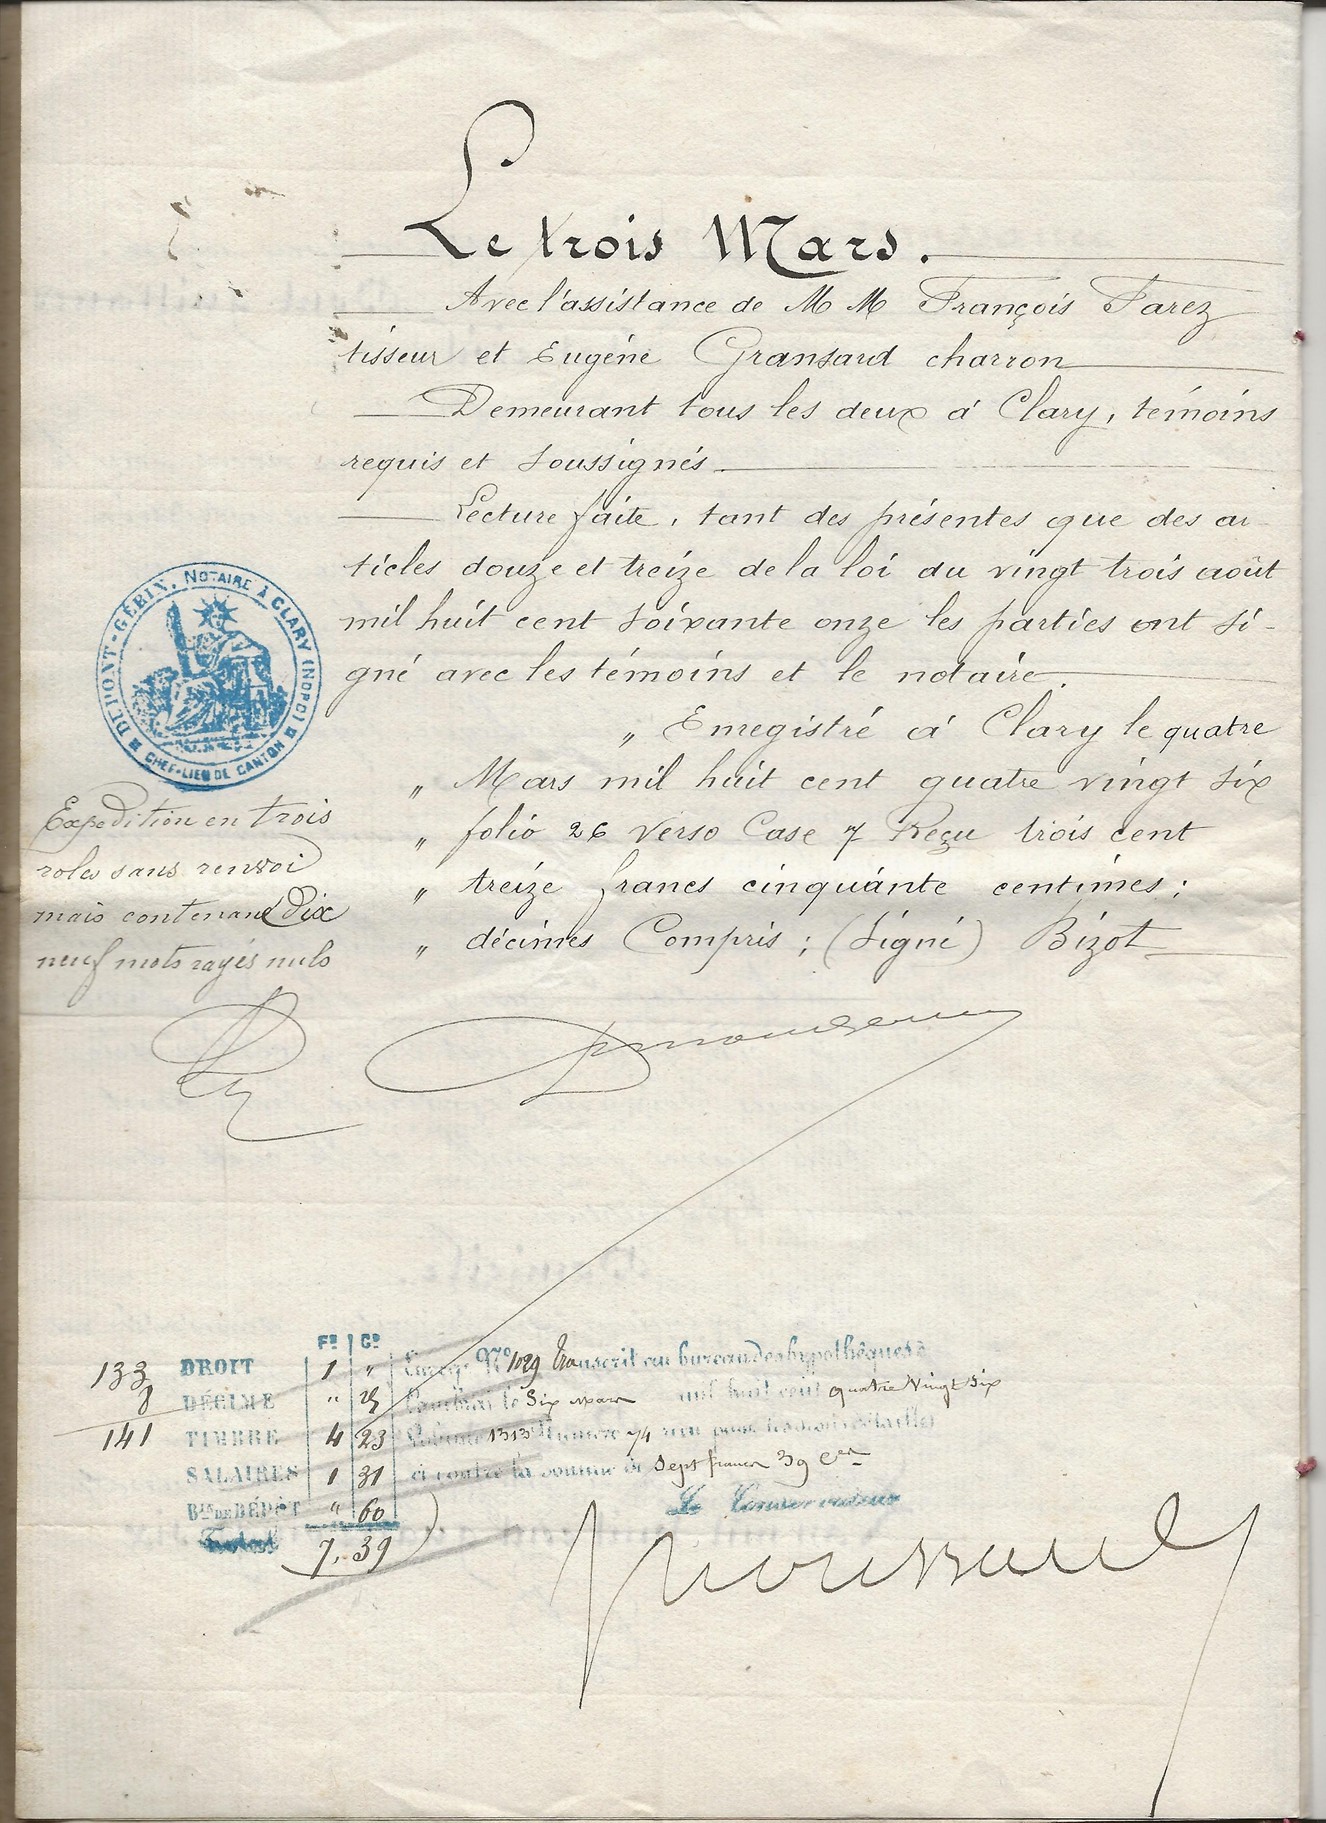 Le trois Mars.
Avec l'assistance de M M François Farez
tisseur et Eugéne Gransard charron
Demeurant tous les deux à Clary, témoins
requis et soussignés.
Lecture faite, tant des présentes que des ar-
ticles douze et treize de la loi du vingt trois août
mil huit cent soixante onze les parties ont si-
gné avec les témoins et le notaire.
DUPONT-GÉRIN, NOTAIRE À CLARY (NORD)
CHEF-LIEU DE CANTON
„ Enregistré à Clary le quatre
„ Mars mil huit cent quatre vingt six
„ folio 26 verso Case 7 Reçu trois cent
„ treize francs cinquante centimes;
„ décimes Compris; (Signé) Bizot
Expedition en trois
roles sans renvoi
mais contenant Dix
neuf mots rayés nuls
Fs Cs
133
8
141
DROIT 1 „
DÉCIME „ 25
TIMBRE 4 23
SALAIRES 1 31
BIN DE DÉPÔT „ 60
7. 39
Enregé No 1029 Transcrit au bureau des hypothèques à
Cambrai le Six mars mil huit cent quatre Vingt Six
Volume 1313 Numéro 74 reçu pour les droits détaillés
ci contre la somme de Sept francs 39 Cen
Le Conservateur